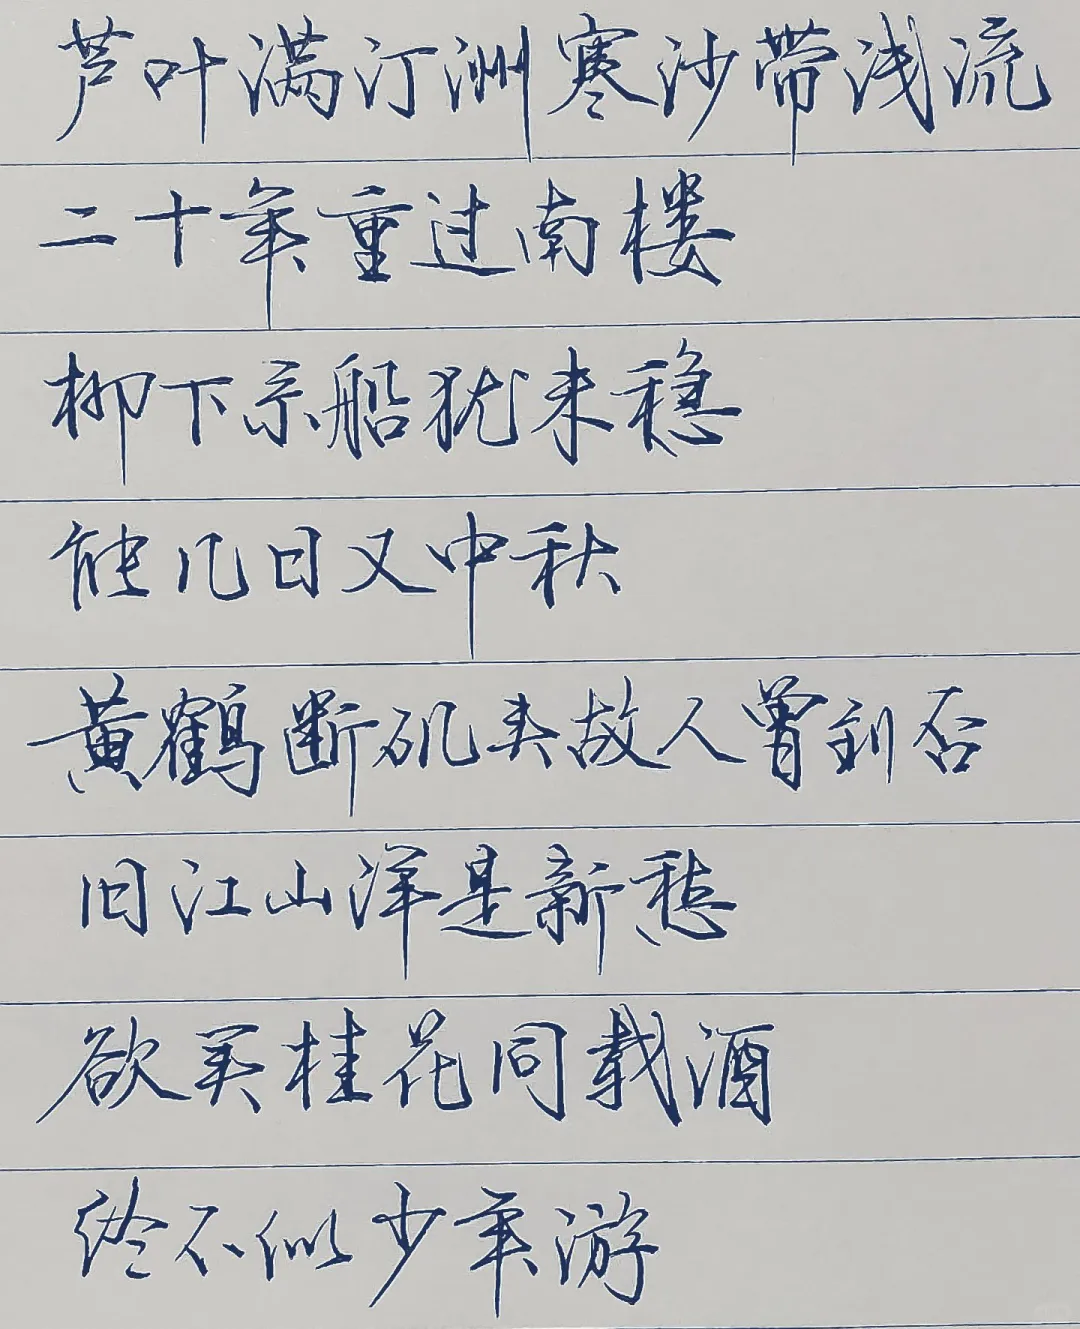 芦叶满汀洲寒沙带浅流
二十年重过南楼
柳下系船犹未稳
能几日又中秋
黄鹤断矶头故人曾到否
旧江山浑是新愁
欲买桂花同载酒
终不似少年游